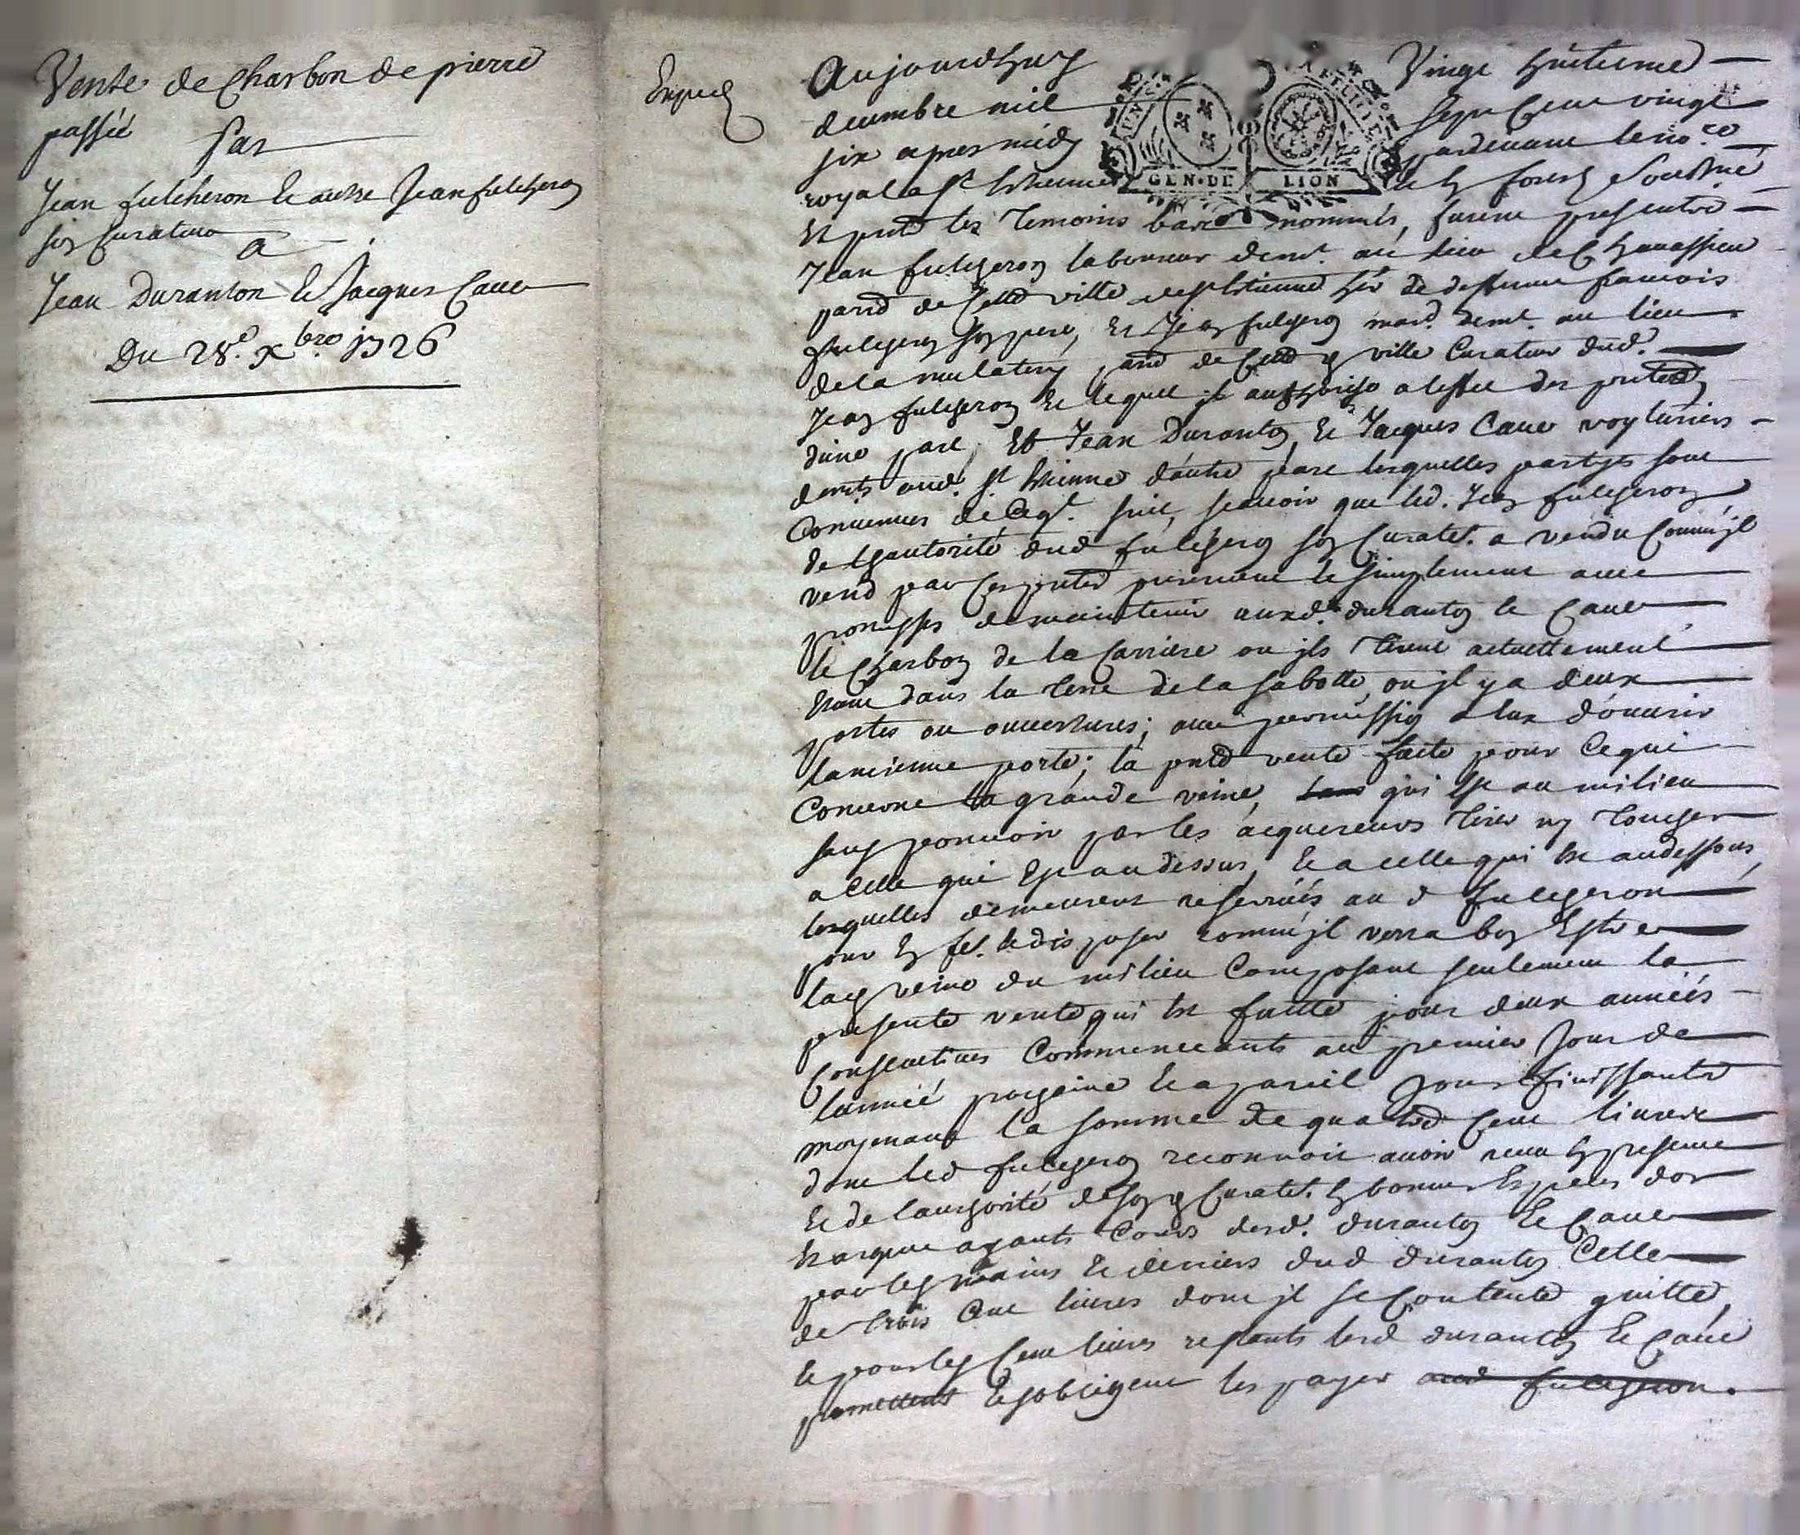 Vente de Charbon de pierre
passée
Par
Jean fulcheron & autre Jean fulcheron
son Curateur
A
Jean Duranton & Jacques Caue
Du 28e. Xbre 1726
Expedié
Aujourdhuy Vingt huitieme
decembre mil sept Cent vingt
six apres midy pardeuant le nore
royal a St Estienne en forest soubsne
GEN·DE LION
Et pnts les temoins bas nommés, furent presents
Jean fulcheron laboureur demt. au lieu de Chauassieu
parre de cette ville de St Estienne her de deffunt francois
fulcheron son pere, Et Jean fulcheron mard. demt. au lieu
de la mulatiere, parre de cette ville Curateur dud.
Jean fulcheron Et lequel il authorise a leffet des pntes
dune part, Et Jean Duranton, Et Jacques Caue voyturiers
demts aud. St Estienne dautre part lesquelles partyes sont
Conuenues de Ce qt. suit, scauoir que led. Jean fulcheron
de lhautorité dud fulcheron son Curatr. a vendu Comm'jl
vend par Ces pntes purement & simplement auec
promesse de maintenir auxd. duranton & Caue
le Charbon de la Carriere ou jls tirent actuellement
Etant dans la terre de la sabotte, ou jl y a deux
portes ou ouuertures; auec permission a lux douurir
lancienne porte; la pnte vente faite pour Ce qui
Concerne la grande veine, qui Est au milieu
sans pouuoir par les acquereurs tirer ny toucher
a Celle qui Est au dessus, Et a celle qui Est au dessous,
lesquelles demeurent reseruées au d fulcheron
pour En fe. & disposer comm'jl verra bon Estre
la veine du milieu Composant seulement la
presente vente qui Est faitte pour deux années
Consecutiues Commencants au premier Jour de
lannée prochaine Et a pareil Jour finissants
moyenant la somme de quatre Cent liures
dont led fulcheron reconnoit auoir receu En presence
Et de lauthorité de son Curatr. En bonnes Especes dor
Et argent ayants Cours desd. duranton Et Caue
par les mains Et deniers dud duranton Celle
de trois Cent liures dont jl se Contente quitte,
& pour les Cent liures restants lesd duranton Et Caue
promettent & sobligent les payer aud fulcheron.